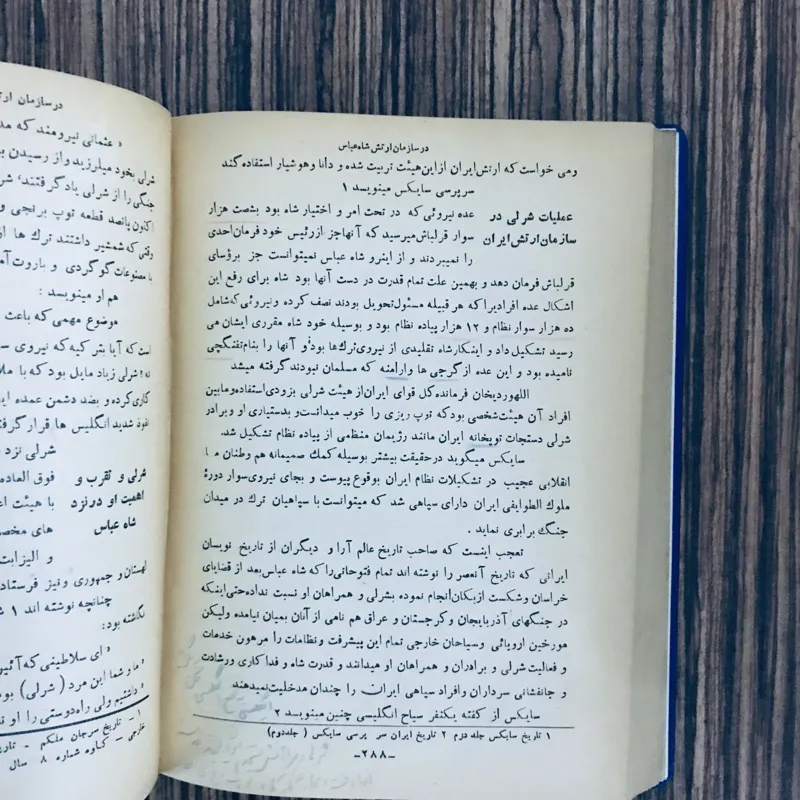 در سازمان ارتش شاه عباس
ومی خواست که ارتش ایران از این هیئت تربیت شده و دانا وهوشیار استفاده گند
سرپرسی سایکس مینویسد ۱
عملیات شرلی در
سازمان ارتش ایران
عده نیروئی که در تحت امر و اختیار شاه بود بشصت هزار
سوار قزلباش میرسید که آنها جز از رئیس خود فرمان احدی
را نمیبردند و از اینرو شاه عباس نمیتوانست جز برؤسای
قزلباش فرمان دهد و بهمین علت تمام قدرت در دست آنها بود شاه برای رفع این
اشکال عده افرادیرا که هر قبیله مسئول تحویل بودند نصف کرده و نیروئی که شامل
ده هزار سوار نظام و ۱۲ هزار پیاده نظام بود و بوسیله خود شاه مقرری ایشان می
رسید تشکیل داد و اینکار شاه تقلیدی از نیروی ترك ها بود و آنها را بنام تفنگچی
نامیده بود و این عده از گرجی ها وارامنه که مسلمان نبودند گرفته میشد
اللهوردیخان فرمانده کل قوای ایران از هیئت شرلی بزودی استفاده و مابین
افراد آن هیئت شخصی بود که توپ ریزی را خوب میدانست و بدستیاری او و برادر
شرلی دستجات توپخانه ایران مانند رژیمان منظمی از پیاده نظام تشکیل شد.
سایکس میگوید در حقیقت بیشتر بوسیله کمك صمیمانه هم وطنان ما
انقلابی عجیب در تشکیلات نظام ایران بوقوع پیوست و بجای نیروی سوار دورۀ
ملوك الطوایفی ایران دارای سپاهی شد که میتوانست با سپاهیان ترك در میدان
جنگ برابری نماید .
تعجب اینست که صاحب تاریخ عالم آرا و دیگران از تاریخ نویسان
ایرانی که تاریخ آنعصر را نوشته اند تمام فتوحاتی را که شاه عباس بعد از قضایای
خراسان وشکست ازبکان انجام نموده بشرلی و همراهان او نسبت نداده حتی اینکه
در جنگهای آذربایجان و گرجستان و عراق هم نامی از آنان بمیان نیامده ولیکن
مورخین اروپائی وسیاحان خارجی تمام این پیشرفت ونظامات را مرهون خدمات
و فعالیت شرلی و برادران و همراهان او میدانند و قدرت شاه و فداکاری ورشادت
و جانفشانی سرداران وافراد سپاهی ایران را چندان مدخلیت نمیدهند
سایکس از گفته یکنفر سیاح انگلیسی چنین مینویسد ۲
۱ تاریخ سایکس جلد دوم ۲ تاریخ ایران سر پرسی سایکس ( جلد دوم)
-۲۸۸-
در سازمان ارت
« عثمانی نیرومند که مد
شرلی بخود میلرزید و از رسیدن ب
جنگی را از شرلی یاد گرفتند، شر
اکنون پانصد قطعه توپ برنجی و
وقتی که شمشیر داشتند ترك ها از
با مصنوعات گوگردی و باروت آم
هم او مینویسد :
موضوع مهمی که باعث
است که آیا بتر کیه که نیروی س
نه ؟ شرلی زیاد مایل بود که با ملا
کاری کرده و بضد دشمن عمده ای
نفوذ شدید انگلیس ها قرار گرفت
شرلی نزد
شرلی و تقرب و
اهمیت او در نزد
شاه عباس
فوق العاده
با هیئت اع
های مخص
و الیزابت
لهستان و جمهوری و نیز فرستاد
چنانچه نوشته اند ۱ ش
نگاشته بود:
« ای سلاطینی که آئین
« ما و شما این مرد ( شرلی ) بو
« داشتیم ولی راه دوستی را او ن
۱ - تاریخ سرجان ملکم - تاری
خارجی - کاوه شماره ۸ سال